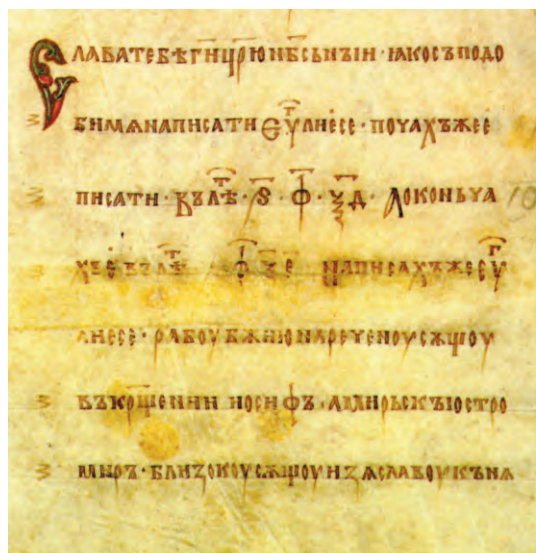 СЛАВАТЕБѢГ҃ИЦР҃ЮНБ҃СЬНЪІИ·ꙖКОСЪПОДО
БИМѦНАПИСАТИЄУⷢЛИЕСЕ·ПОЧАХЪЖЕЕ
ПИСАТИ·ВЪЛѢⷮ·Ѕ҃·Ф҃·Ѯ҃Д·АОКОНЬЧА
ХЪЕВЪЛѢⷮ·Ф҃·Ѯ҃Е·НАПИСАХЪЖЕЄУⷢ
ЛИЕСЕ·РАБОУБЖ҃ИЮНАРЕЧЕНОУСѪЩОУ
ВЪКР҃ЩЕНИИИОСИФЪ·АМИРЬСКЪІОСТРО
МИРЪ·БЛИЗОКОУСѪЩОУИЗѦСЛАВОУКЪНѦ